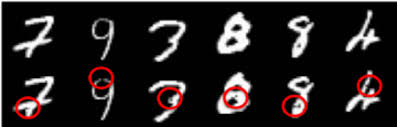 7 9 3 8 8 4
7 9 3 8 8 4